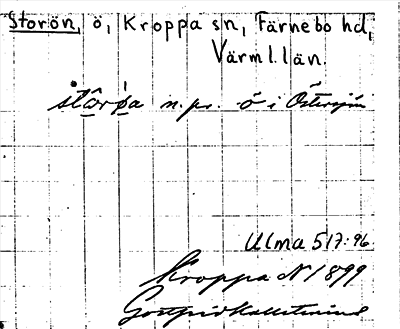 Storön, ö, Kroppa sn, Färnebo hd,
Värml. län.
n. pr. ö i Östersjön
Ulma 517:96
Kroppa N 1899
Gottfrid Kallstenius